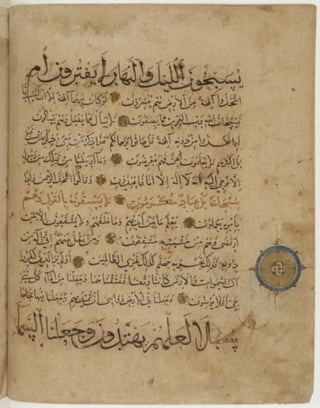 يسبحون الليل والنهار لا يفترون أم
اتخذوا آلهة من الأرض هم ينشرون لو كان فيهما آلهة إلا الله لفسدتا
فسبحان الله رب العرش عما يصفون لا يسأل عما يفعل وهم يسألون
أم اتخذوا من دونه آلهة قل هاتوا برهانكم هذا ذكر من معي وذكر من قبلي
بل أكثرهم لا يعلمون الحق فهم معرضون وما أرسلنا من قبلك من رسول
إلا نوحي إليه أنه لا إله إلا أنا فاعبدون وقالوا اتخذ الرحمن ولدا
سبحانه بل عباد مكرمون لا يسبقونه بالقول وهم
بأمره يعملون يعلم ما بين أيديهم وما خلفهم ولا يشفعون إلا لمن
ارتضى وهم من خشيته مشفقون ومن يقل منهم إني إله من
دونه فذلك نجزيه جهنم كذلك نجزي الظالمين أولم ير الذين كفروا
أن السموات والأرض كانتا رتقا ففتقناهما وجعلنا من الماء كل شيء
حي أفلا يؤمنون وجعلنا في الأرض رواسي أن تميد بهم وجعلنا فيها فجاجا
سبلا لعلهم يهتدون وجعلنا السما